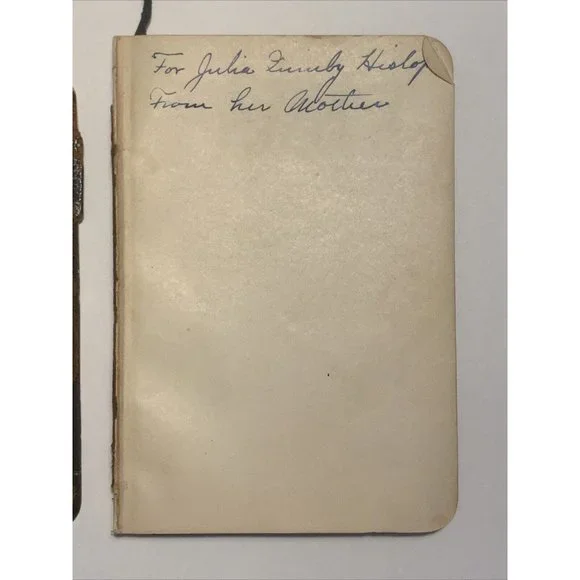 For Julia Hislop
From her Mother